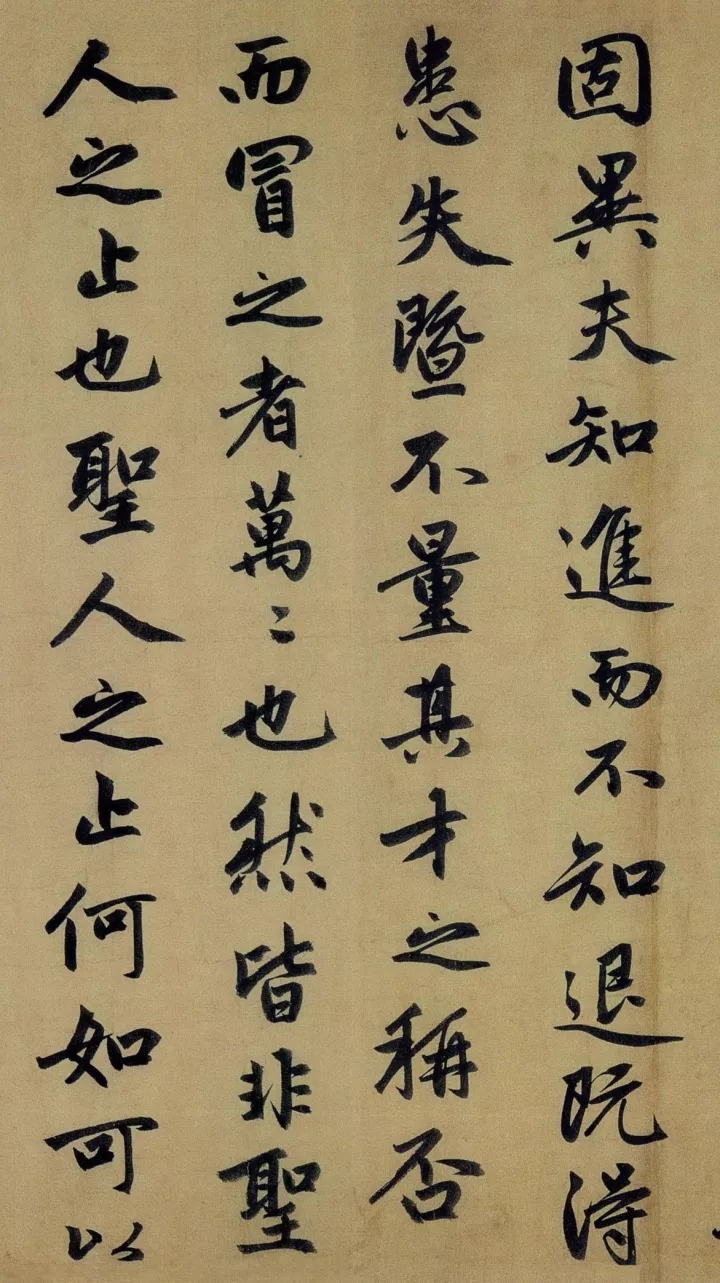 固異夫知進而不知退既得
患失暨不量其才之稱否
而冒之者萬〻也然皆非聖
人之止也聖人之止何如可以